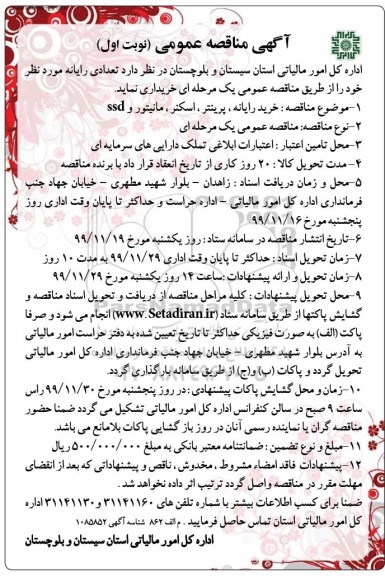 آگهی مناقصه عمومی (نوبت اول)
اداره کل امور مالیاتی استان سیستان و بلوچستان در نظر دارد تعدادی رایانه مورد نظر
خود را از طریق مناقصه عمومی یک مرحله ای خریداری نماید.
۱-موضوع مناقصه : خرید رایانه ، پرینتر ، اسکنر ، مانیتور و ssd
۲-نوع مناقصه: مناقصه عمومی یک مرحله ای
۳-محل تامین اعتبار : اعتبارات ابلاغی تملک دارایی های سرمایه ای
۴-مدت تحویل کالا : ۲۰ روز کاری از تاریخ انعقاد قرار داد با برنده مناقصه
۵-محل و زمان دریافت اسناد : زاهدان - بلوار شهید مطهری - خیابان جهاد جنب
فرمانداری اداره کل امور مالیاتی - اداره حراست و حداکثر تا پایان وقت اداری روز
پنجشنبه مورخ ۹۹/۱۱/۱۶
۶-تاریخ انتشار مناقصه در سامانه ستاد : روز یکشنبه مورخ ۹۹/۱۱/۱۹
۷-زمان تحویل اسناد : حداکثر تا پایان وقت اداری ۹۹/۱۱/۲۹ به مدت ۱۰ روز
۸-زمان تحویل و ارائه پیشنهادات :ساعت ۱۴ روز یکشنبه مورخ ۹۹/۱۱/۲۹
۹-محل تحویل پیشنهادات : کلیه مراحل مناقصه از دریافت و تحویل اسناد مناقصه و
گشایش پاکتها از طریق سامانه ستاد (www.Setadiran.ir) انجام می شود و صرفا
پاکت (الف) به صورت فیزیکی حداکثر تا تاریخ تعیین شده به دفتر حراست امور مالیاتی
به آدرس بلوار شهید مطهری - خیابان جهاد جنب فرمانداری اداره کل امور مالیاتی
تحویل گردد و پاکات (پ) و(ج) از طریق سامانه بارگذاری گردد.
۱۰-زمان و محل گشایش پاکات پیشنهادی : در روز پنجشنبه مورخ ۹۹/۱۱/۳۰ راس
ساعت ۹ صبح در سالن کنفرانس اداره کل امور مالیاتی تشکیل می گردد ضمنا حضور
مناقصه گران یا نماینده رسمی آنان در روز باز گشایی پاکات بلامانع می باشد.
۱۱-مبلغ و نوع تضمین : ضمانتنامه معتبر بانکی به مبلغ ۵۰۰/۰۰۰/۰۰۰ ریال
۱۲-پیشنهادات فاقد امضاء مشروط ، مخدوش ، ناقص و پیشنهاداتی که بعد از انقضای
مهلت مقرر در مناقصه واصل گردد ترتیب اثر داده نخواهد شد .
ضمنا برای کسب اطلاعات بیشتر با شماره تلفن های ۳۱۱۴۱۱۶۰ و۳۱۱۴۱۱۳۰ اداره
کل امور مالیاتی استان تماس حاصل فرمایید . م الف ۸۶۲ شناسه آگهی ۱۰۸۵۸۵۲
اداره کل امور مالیاتی استان سیستان و بلوچستان